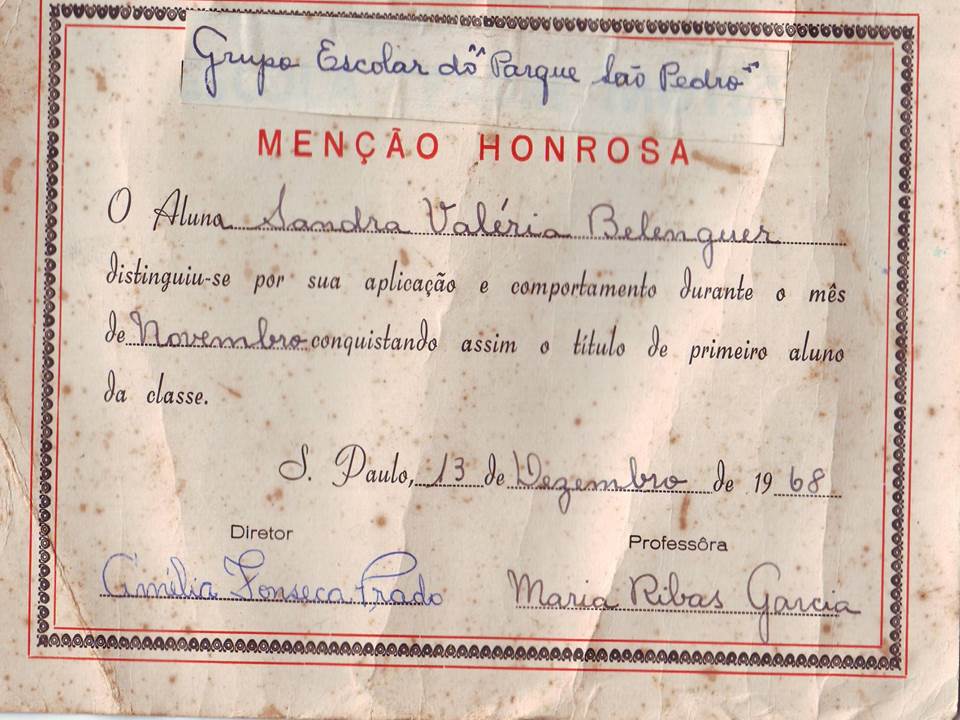 Grupo Escolar do "Parque São Pedro"
MENÇÃO HONROSA
O Aluno Sandra Valéria Belenguer
distinguiu-se por sua aplicação e comportamento durante o mês
de Novembro conquistando assim o título de primeiro aluno
da classe.
S. Paulo, 13 de Dezembro de 1968
Diretor
Professôra
Amélia Fonseca Prado
Maria Ribas Garcia